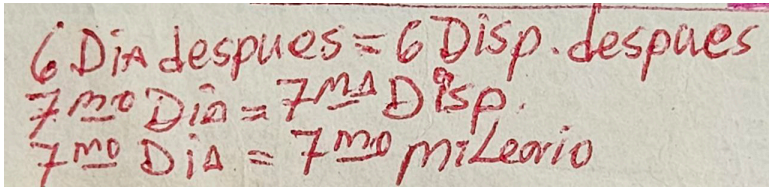 6 DiA despues = 6 Disp. despues
7mo DiA = 7MA Disp.
7mo DiA = 7mo miLeario